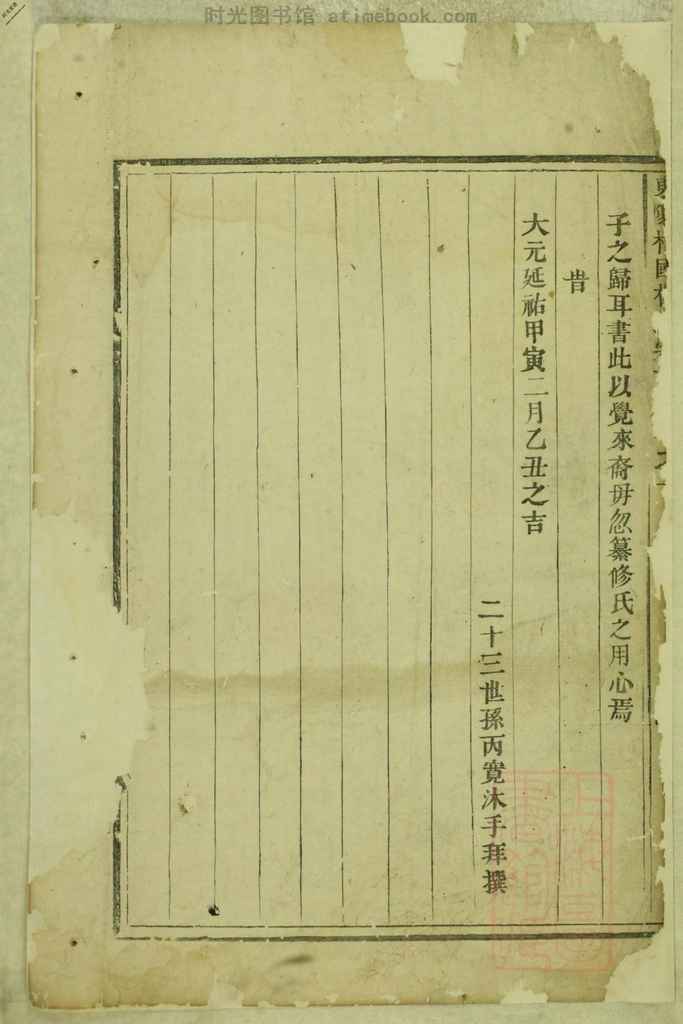 时光图书馆 atimebook.com
子之歸耳書此以覺來裔毋忽纂修氏之用心焉
旹
大元延祐甲寅二月乙丑之吉
二十三世孫丙寬沐手拜撰